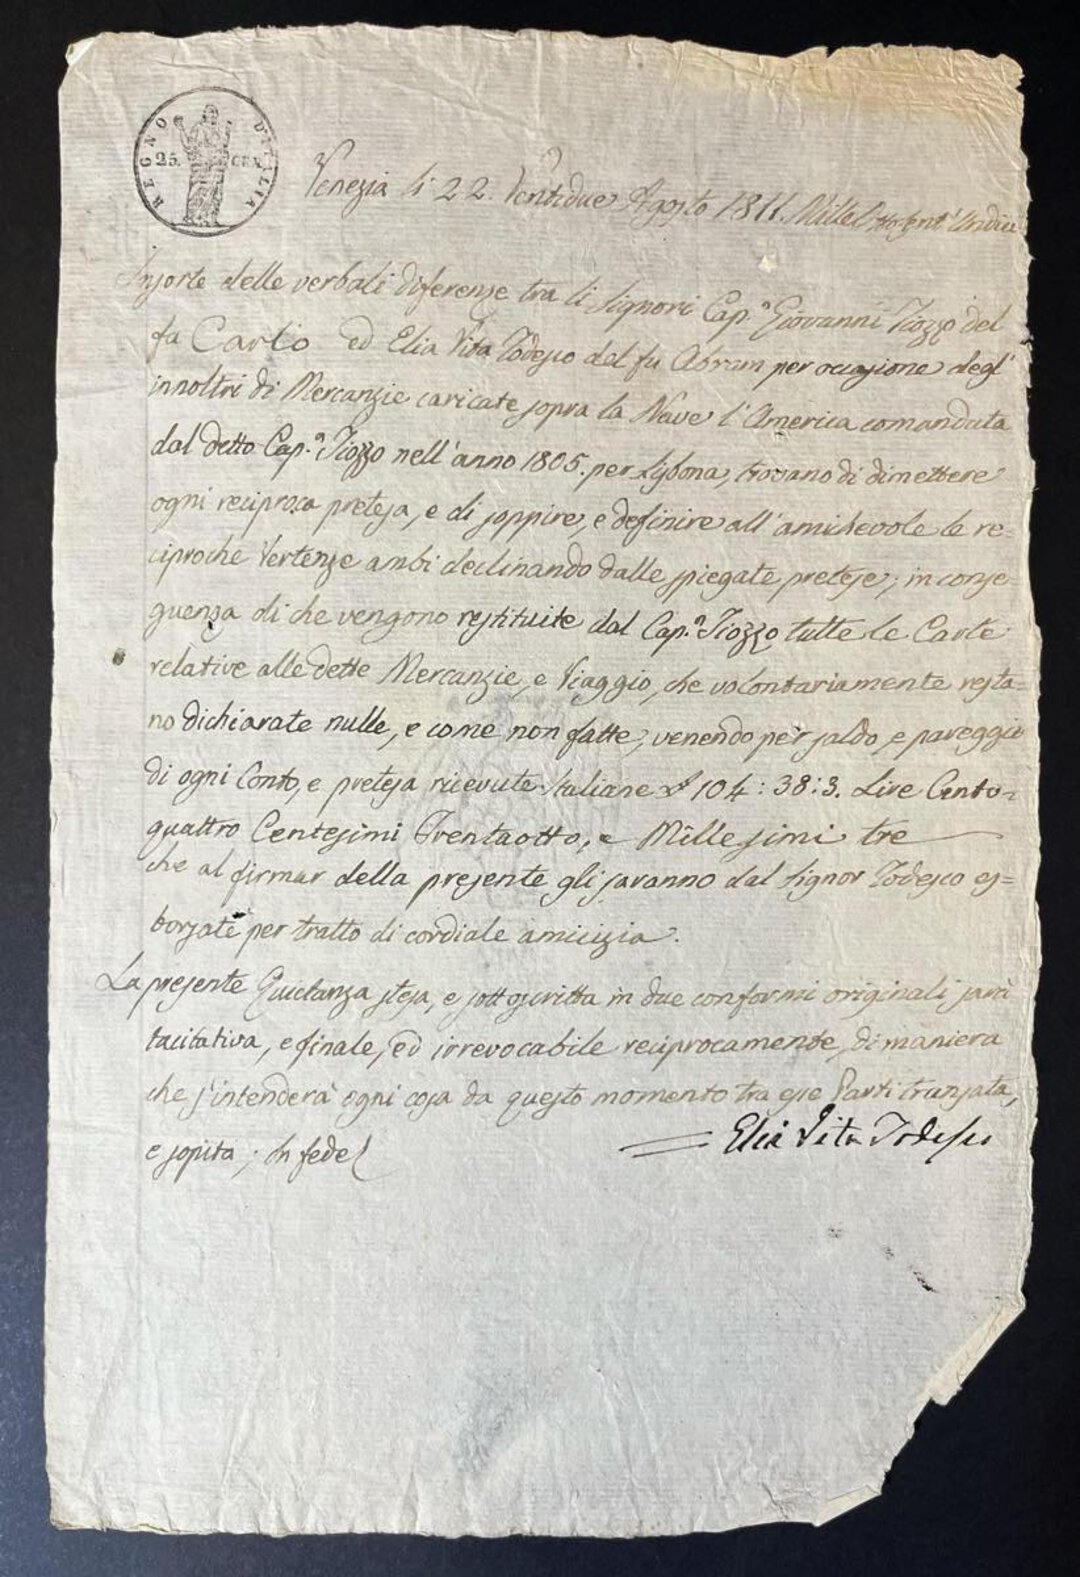 REGNO D'ITALIA
25. CEN.
Venezia li 22. Ventidue Agosto 1811. Millel Ottocent' Undici
Insorte delle verbali diferenze tra li Signori Cap.n Giovanni Tiozzo del
fu Carlo ed Elia Vita Todesco del fu Abram per occasione degl'
innoltri di Mercanzie caricate sopra la Nave l'America comandata
dal detto Cap.n Tiozzo nell'anno 1805. per Lisbona, trovano di dimettere
ogni reciproca pretesa, e di soppire, e definire all'amichevole le re=
ciproche Vertenze ambi declinando dalle spiegate pretese; in conse
guenza di che vengono restituite dal Cap.n Tiozzo tutte le Carte
relative alle dette Mercanzie, e Viaggio, che volontariamente resta=
no dichiarate nulle, e come non fatte, venendo per saldo, e pareggio
di ogni Conto, e pretesa ricevute Italiane L 104:38:3. Lire Cento=
quattro Centesimi Trentaotto, e Millesimi tre
che al firmar della presente gli saranno dal Signor Todesco es=
borsate per tratto di cordiale amicizia.
La presente Quietanza stesa, e sottoscritta in due conformi originali sarà
tacitativa, e finale, ed irrevocabile reciprocamente, di maniera
che s'intenderà ogni cosa da questo momento tra esse Parti transata,
e sopita; In fede
Elia Vita Todesco